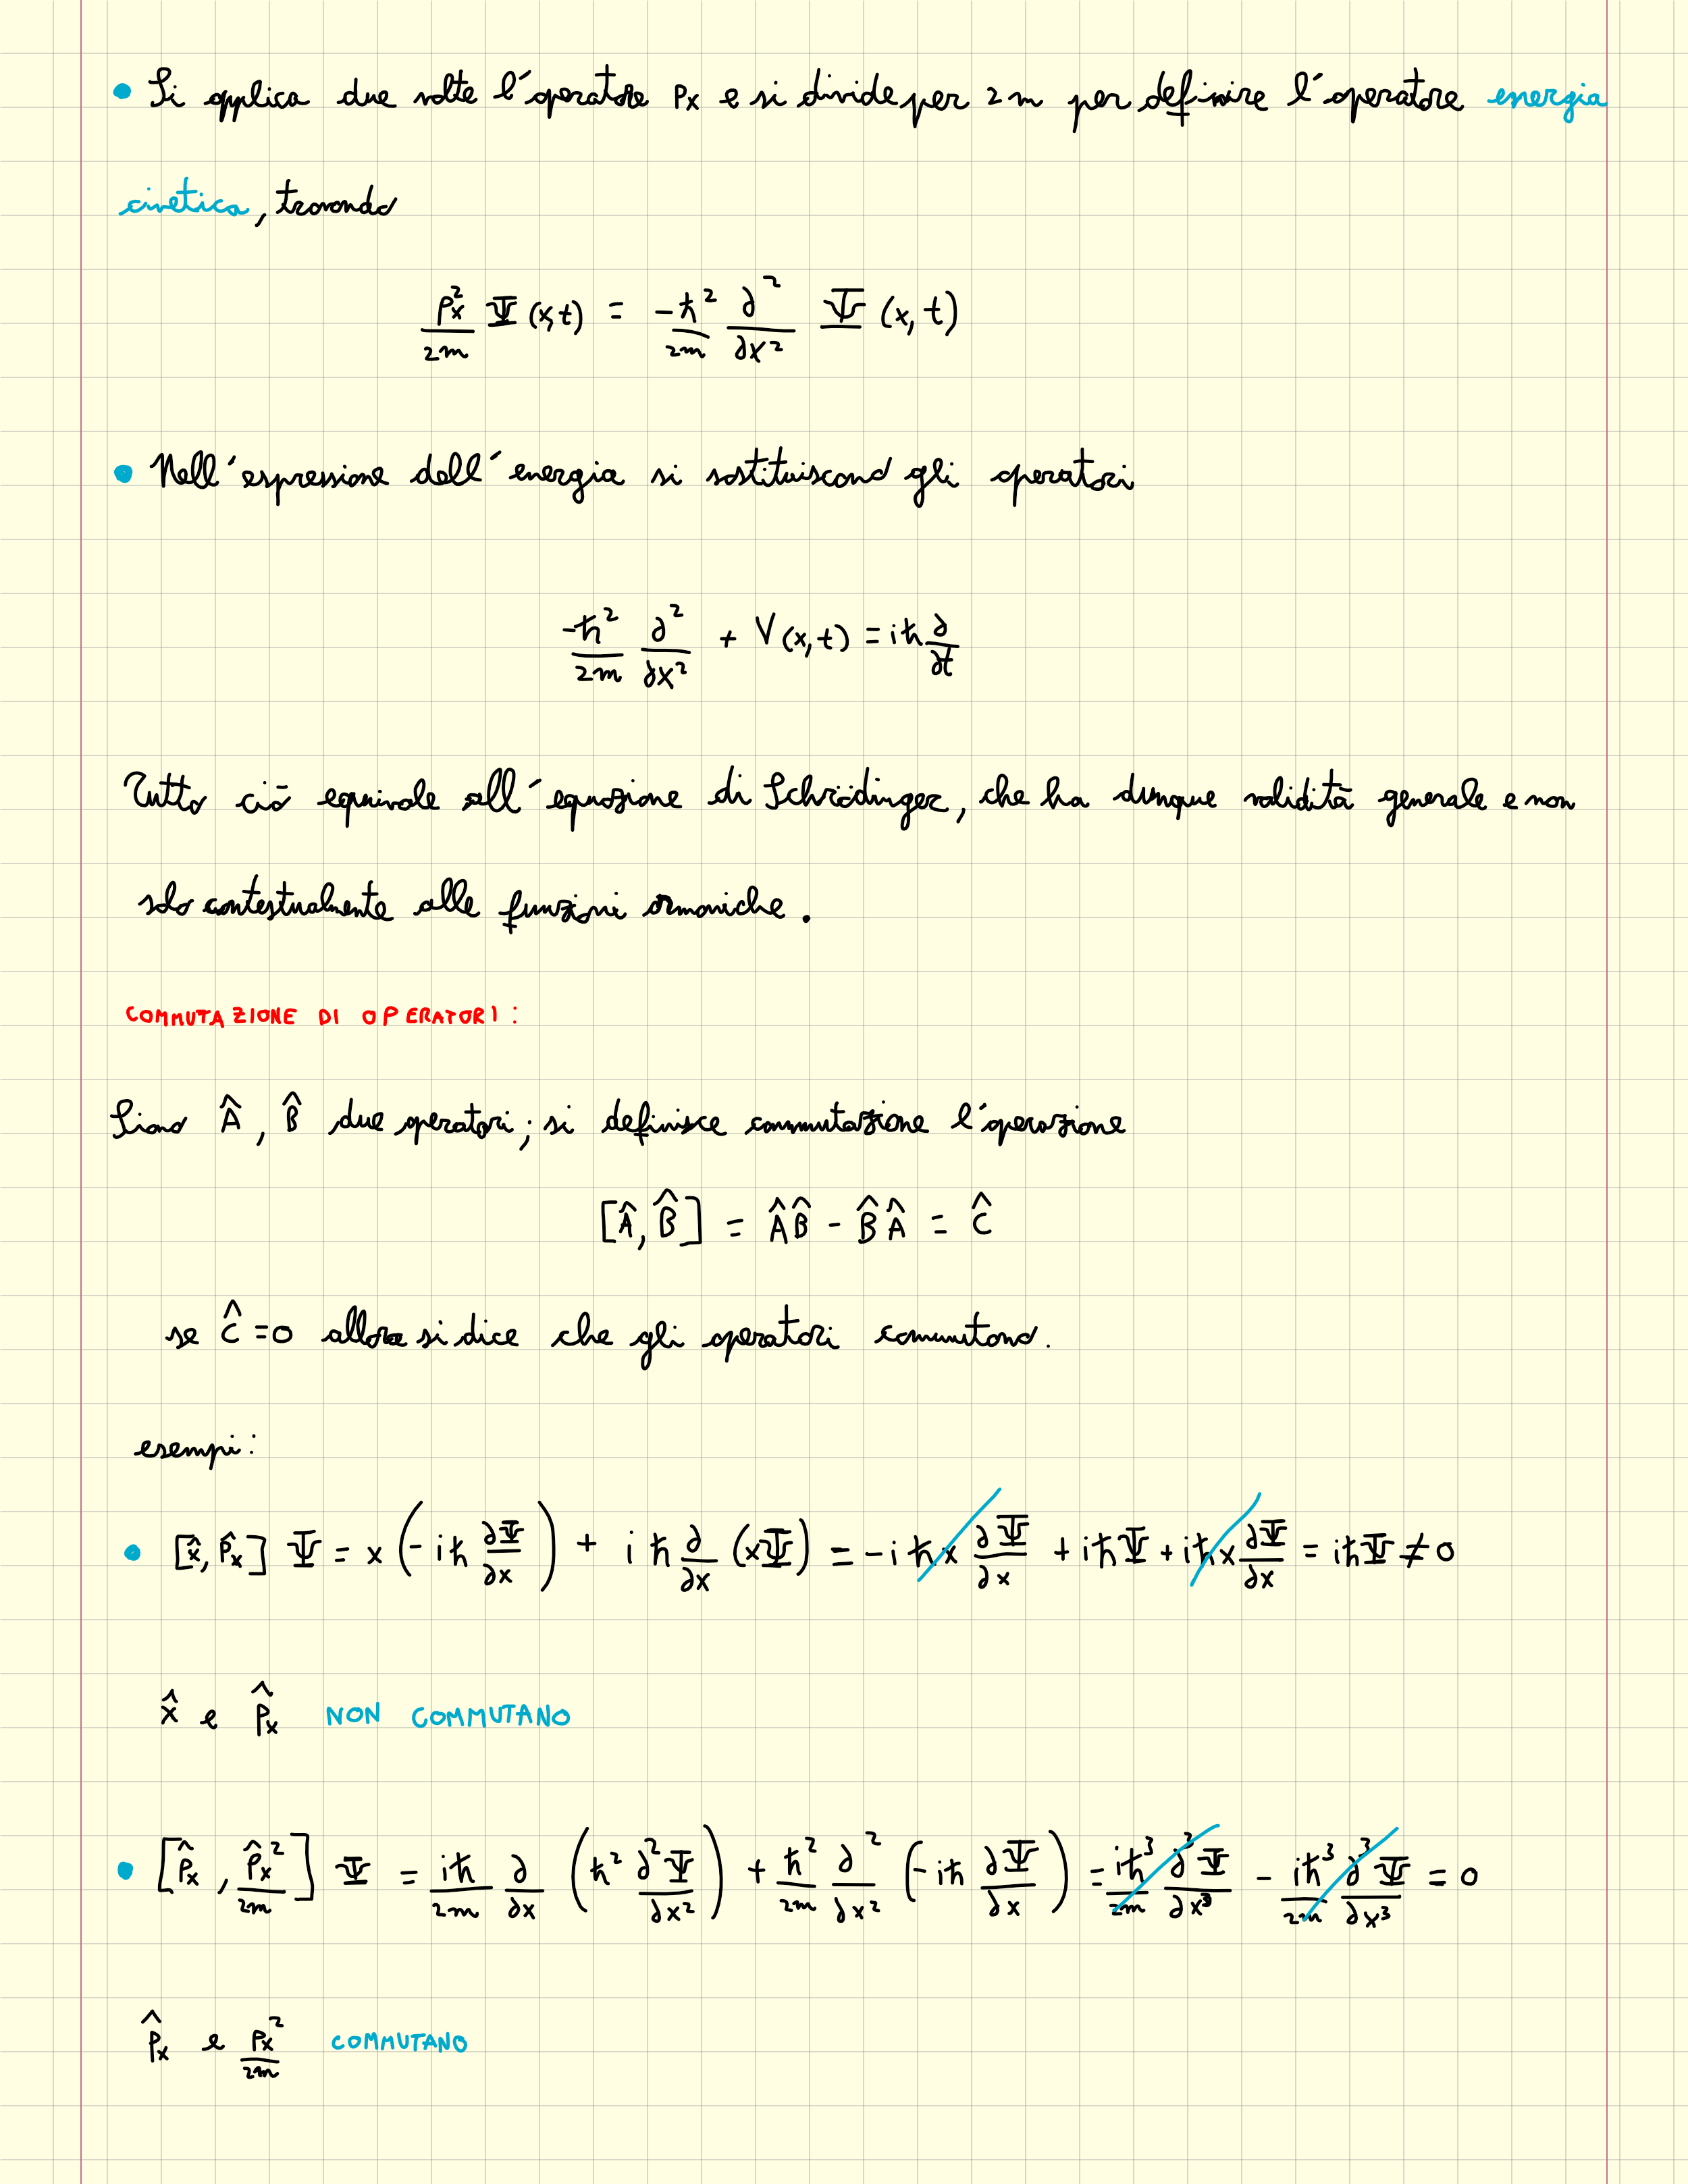 • Si applica due volte l'operatore Px e si divide per 2m per definire l'operatore energia
cinetica, trovando
Px²/2m Ψ(x,t) = -ħ²/2m ∂²/∂x² Ψ(x,t)
• Nell'espressione dell'energia si sostituiscono gli operatori
-ħ²/2m ∂²/∂x² + V(x,t) = iħ ∂/∂t
Tutto ciò equivale all'equazione di Schrödinger, che ha dunque validità generale e non
solo contestualmente alle funzioni armoniche.
COMMUTAZIONE DI OPERATORI:
Siano Â, B̂ due operatori; si definisce commutazione l'operazione
[Â, B̂] = ÂB̂ - B̂Â = Ĉ
se Ĉ = 0 allora si dice che gli operatori commutano.
esempi:
• [x̂, P̂x] Ψ = x(-iħ ∂Ψ/∂x) + iħ ∂/∂x (xΨ) = -iħx ∂Ψ/∂x + iħΨ + iħx ∂Ψ/∂x = iħΨ ≠ 0
x̂ e P̂x NON COMMUTANO
• [P̂x, P̂x²/2m] Ψ = iħ/2m ∂/∂x (ħ² ∂²Ψ/∂x²) + ħ²/2m ∂²/∂x² (-iħ ∂Ψ/∂x) = iħ³/2m ∂³Ψ/∂x³ - iħ³/2m ∂³Ψ/∂x³ = 0
P̂x e Px²/2m COMMUTANO